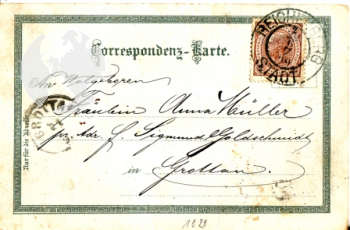 Correspondenz-Karte.
An Wolgeboren
Fräulein Anna Müller
pr. Adr. S. Sigmund Goldschmidt
in Grottau.
Nur für die Adresse
REICHENBERG
STADT
GROTTAU